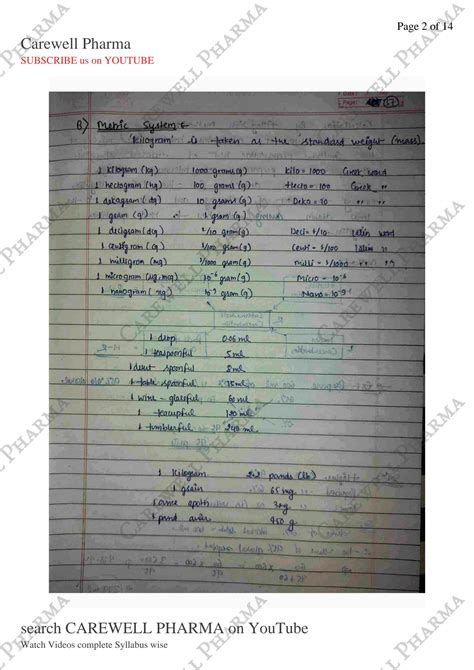 Page 2 of 14
Carewell Pharma
SUBSCRIBE us on YOUTUBE
Page:
B) Metric System
'kilogram' is taken as the standard weight (mass).
1 kilogram (kg) 1000 grams (g) Kilo = 1000 Greek word
1 hectogram (hg) 100 grams (g) Hecto = 100 Greek "
1 dekagram (dg) 10 grams (g) Deka = 10 " "
1 gram (g) 1 gram (g)
1 decigram (dg) 1/10 gram (g) Deci = 1/10 Latin word
1 centigram (cg) 1/100 gram (g) Centi = 1/100 Latin "
1 milligram (mg) 1/1000 gram (g) Milli = 1/1000 " "
1 microgram (µg, mcg) 10-6 gram (g) Micro = 10-6
1 nanogram (ng) 10-9 gram (g) Nano = 10-9
1 drop 0.06 ml
1 teaspoonful 5 ml
1 desert spoonful 8 ml
1 table spoonful 15 ml
1 wine - glassful 60 ml
1 teacupful 120 ml
1 tumblerful 240 ml
1 kilogram 2.2 pounds (lb)
1 grain 65 mg
1 ounce apoth 30 g
1 pound avoir 450 g
CAREWELL PHARMA
search CAREWELL PHARMA on YouTube
Watch Videos complete Syllabus wise